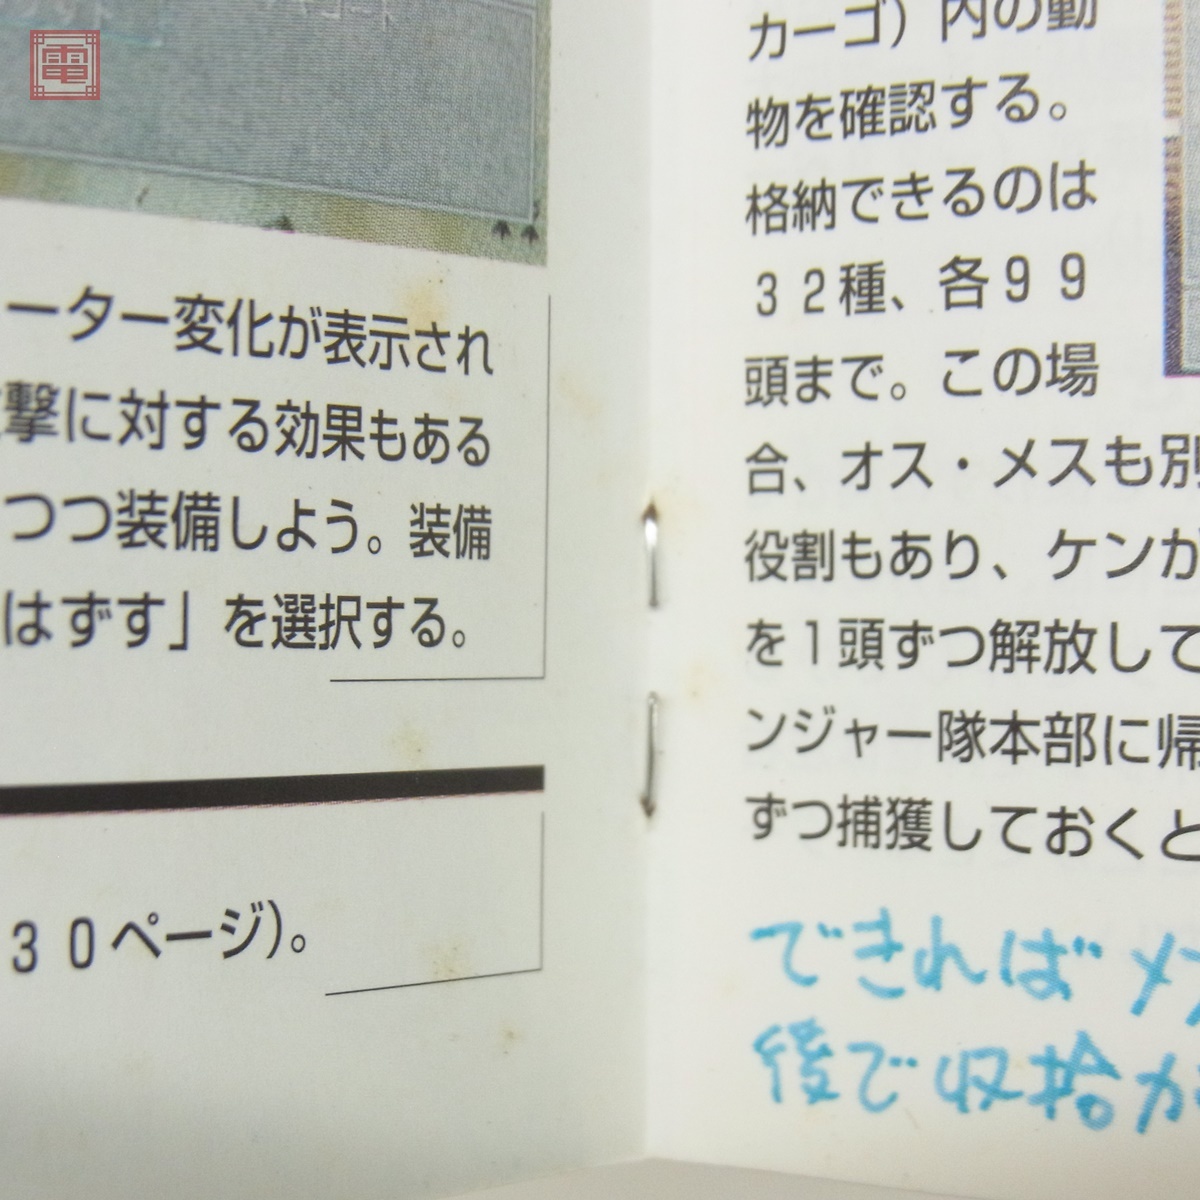 電
ーター変化が表示され
撃に対する効果もある
つつ装備しよう。装備
はずす」を選択する。
30ページ)。
カーゴ)内の動
物を確認する。
格納できるのは
32種、各99
頭まで。この場
合、オス・メスも別
役割もあり、ケンが
を1頭ずつ解放して
ンジャー隊本部に帰
ずつ捕獲しておくと
できればメ
後で収拾が